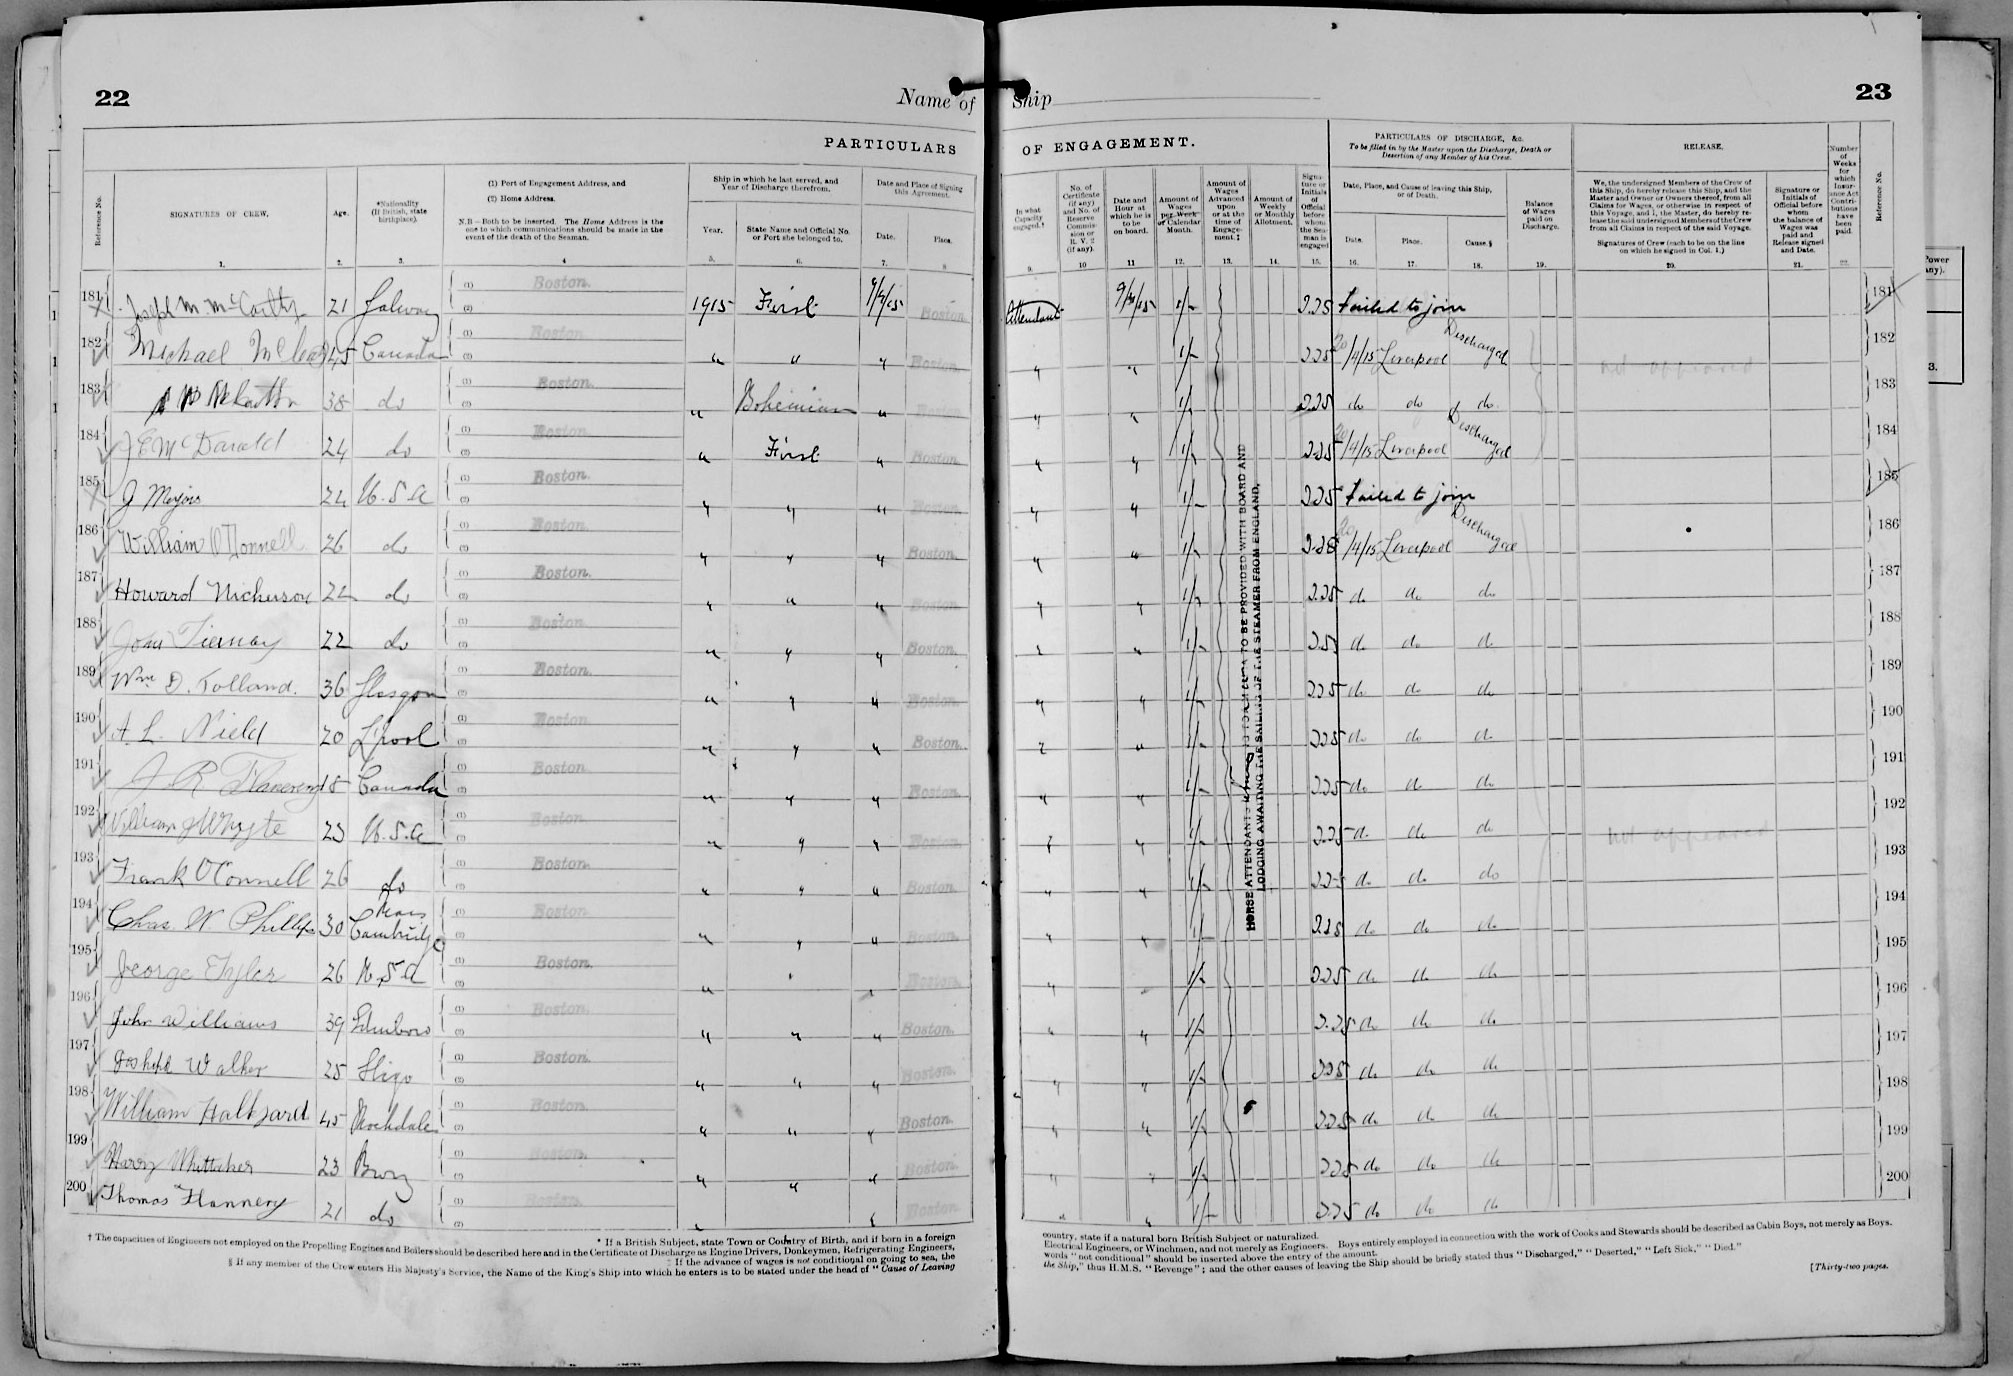 22
Name of Ship
23
PARTICULARS OF ENGAGEMENT.
PARTICULARS OF DISCHARGE, &c.
To be filled in by the Master upon the Discharge, Death or Desertion of any Member of his Crew.
RELEASE.
Reference No.
SIGNATURES OF CREW.
Age.
*Nationality (If British, state birthplace).
(1) Port of Engagement Address, and
(2) Home Address.
N.B.—Both to be inserted. The Home Address is the one to which communications should be made in the event of the death of the Seaman.
Ship in which he last served, and Year of Discharge therefrom.
Year.
State Name and Official No. or Port she belonged to.
Date and Place of Signing this Agreement.
Date.
Place.
In what Capacity engaged.†
No. of Certificate (if any) and No. of Reserve Commission or R. V. 2 (if any).
Date and Hour at which he is to be on board.
Amount of Wages per Week or Calendar Month.
Amount of Wages Advanced upon or at the time of Engagement.‡
Amount of Weekly or Monthly Allotment.
Signature or Initials of Official before whom the Seaman is engaged
Date, Place, and Cause of leaving this Ship, or of Death.
Date.
Place.
Cause.§
Balance of Wages paid on Discharge.
We, the undersigned Members of the Crew of this Ship, do hereby release this Ship, and the Master and Owner or Owners thereof, from all Claims for Wages, or otherwise in respect of this Voyage, and I, the Master, do hereby release the said undersigned Members of the Crew from all Claims in respect of the said Voyage.
Signatures of Crew (each to be on the line on which he signed in Col. 1.)
Signature or Initials of Official before whom the balance of Wages was paid and Release signed and Date.
Number of Weeks for which Insurance Act Contributions have been paid.
Reference No.
1. 2. 3. 4 5. 6. 7. 8 9. 10 11 12. 13. 14. 15. 16. 17. 18. 19. 20. 21. 22.
181 Joseph M. McCarthy 21 Galway Boston. 1915 First Boston. Attendant 1/- 225 Failed to join 181
182 Michael 45 Canada Boston. " " " Boston. " " 1/- 225 20/4/15 Liverpool Discharged not appeared 182
183 38 do Boston. " Bohemian " Boston. " " 1/- 225 do do do 183
184 J E McDarald 24 do Boston. " First " Boston. " " 1/- 225 20/4/15 Liverpool Discharged 184
185 J Meyers 22 U.S.A Boston. " " " Boston. " " 1/- 225 Failed to join 185
186 William O'Donnell 26 do Boston. " " " Boston. " " 1/- 225 20/4/15 Liverpool Discharged 186
187 Howard Nickerson 22 do Boston. " " " Boston. " " 1/- 225 do do do 187
188 John Tiernay 22 do Boston. " " " Boston. " " 1/- 225 do do do 188
189 Wm D. Tolland. 36 Glasgow Boston. " " " Boston. " " 1/- 225 do do do 189
190 A. L. Nield 20 L'pool Boston. " " " Boston. " " 1/- 225 do do do 190
191 J R Canada Boston. " " " Boston. " " 1/- 225 do do do 191
192 William J Whyte 23 U.S.A Boston. " " " Boston. " " 1/- 225 do do do not appeared 192
193 Frank O'Connell 26 do Boston. " " " Boston. " " 1/- 225 do do do 193
194 Chas. W. Phillips 30 Cambridge Mass Boston. " " " Boston. " " 1/- 225 do do do 194
195 George E Tyler 26 U S A Boston. " " " Boston. " " 1/- 225 do do do 195
196 John Williams 39 Boston. " " " Boston. " " 1/- 225 do do do 196
197 Joseph Walker 25 Sligo Boston. " " " Boston. " " 1/- 225 do do do 197
198 William 45 Rochdale Boston. " " " Boston. " " 1/- 225 do do do 198
199 Harry Whittaker 23 Bury Boston. " " " Boston. " " 1/- 225 do do do 199
200 Thomas Flannery 21 do Boston. " " " Boston. " " 1/- 225 do do do 200
HORSE ATTENDANTS TO BE PROVIDED WITH BOARD AND
LODGING AWAITING THE SAILING OF THE STEAMER FROM ENGLAND.
* If a British Subject, state Town or Country of Birth, and if born in a foreign country, state if a natural born British Subject or naturalized.
† The capacities of Engineers not employed on the Propelling Engines and Boilers should be described here and in the Certificate of Discharge as Engine Drivers, Donkeymen, Refrigerating Engineers, Electrical Engineers, or Winchmen, and not merely as Engineers. Boys entirely employed in connection with the work of Cooks and Stewards should be described as Cabin Boys, not merely as Boys.
‡ If the advance of wages is not conditional on going to sea, the words "not conditional" should be inserted above the entry of the amount.
§ If any member of the Crew enters His Majesty's Service, the Name of the King's Ship into which he enters is to be stated under the head of "Cause of Leaving the Ship," thus H.M.S. "Revenge"; and the other causes of leaving the Ship should be briefly stated thus "Discharged," "Deserted," "Left Sick," "Died."
[Thirty-two pages.